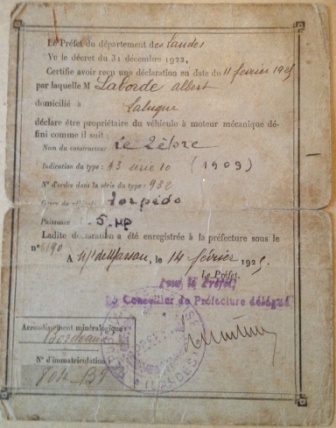 Le Préfet du département des Landes
Vu le décret du 31 décembre 1922,
Certifie avoir reçu une déclaration en date du 11 février 1925
par laquelle M Laborde albert
domicilié à Laluque
déclare être propriétaire du véhicule à moteur mécanique dé-
fini comme il suit :
Nom du constructeur Le Zèbre
Indication du type : A3 serie 10 (1909)
N° d'ordre dans la série du type : 932
torpédo
Puissance 5 HP
Ladite déclaration a été enregistrée à la préfecture sous le
n° 8190
A Mt de Marsan, le 14 février 1925
le Préfet,
Pour le Préfet,
Le Conseiller de Préfecture délégué
Arrondissement minéralogique :
Bordeaux
N° d'immatriculation :